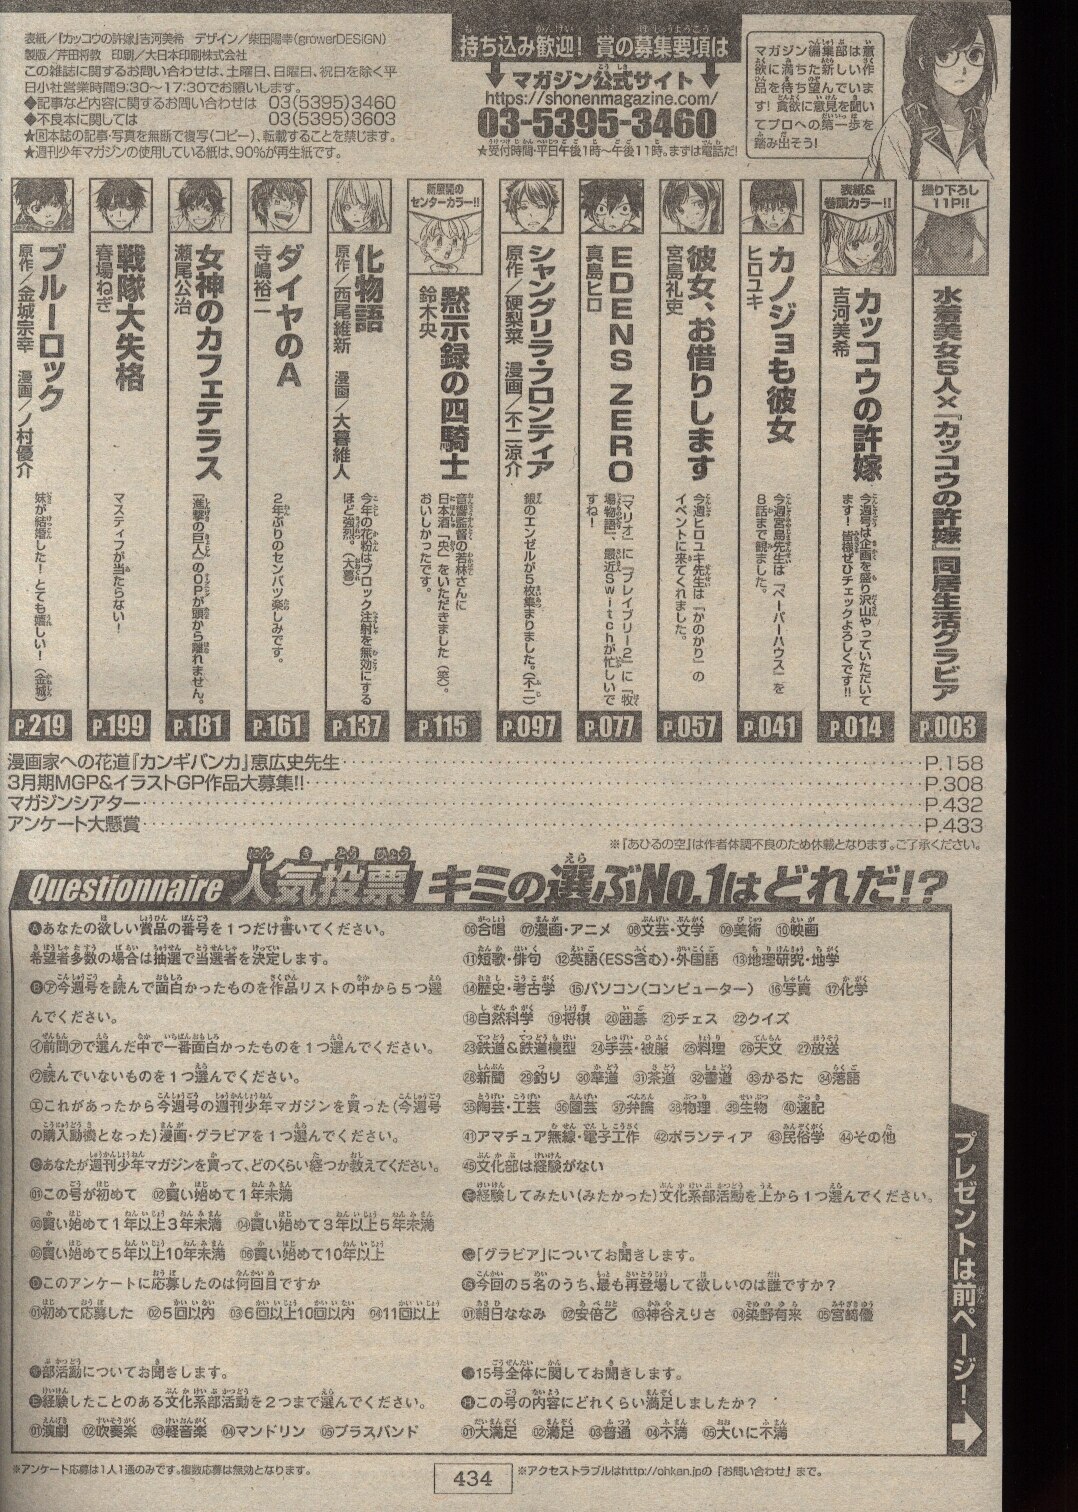 表紙/『カッコウの許嫁』吉河美希　デザイン/柴田陽幸(growerDESIGN)
製版/芹田将教　印刷/大日本印刷株式会社
この雑誌に関するお問い合わせは、土曜日、日曜日、祝日を除く平
日小社営業時間9:30〜17:30でお願いします。
◆記事など内容に関するお問い合わせは　03(5395)3460
◆不良本に関しては　03(5395)3603
★本誌の記事・写真を無断で複写(コピー)、転載することを禁じます。
★週刊少年マガジンの使用している紙は、90%が再生紙です。
持ち込み歓迎! 賞の募集要項は
マガジン公式サイト
https://shonenmagazine.com/
03-5395-3460
★受付時間・平日午後1時〜午後11時。まずは電話だ!
マガジン編集部は意
欲に満ちた新しい作
品を待ち望んでいま
す! 貪欲に意見を聞い
てプロへの第一歩を
踏み出そう!
撮り下ろし
11P!!
水着美女5人×『カッコウの許嫁』同居生活グラビア
P.003
表紙&
巻頭カラー!!
カッコウの許嫁
吉河美希
今週号は企画を盛り沢山やっていただいて
ます! 皆様ぜひチェックよろしくです!!
P.014
カノジョも彼女
ヒロユキ
今週宮島先生は『ペーパーハウス』を
8話まで観ました。
P.041
彼女、お借りします
宮島礼吏
今週ヒロユキ先生は『かのかり』の
イベントに来てくれました。
P.057
EDENS ZERO
真島ヒロ
『マリオ』に『ブレイブリー2』に『牧
場物語』、最近Switchが忙しいで
すね!
P.077
シャングリラ・フロンティア
原作/硬梨菜　漫画/不二涼介
銀のエンゼルが5枚集まりました。(不二)
P.097
新展開の
センターカラー!!
黙示録の四騎士
鈴木央
音響監督の若林さんに
日本酒「央」をいただきました(笑)。
おいしかったです。
P.115
化物語
原作/西尾維新　漫画/大暮維人
今年の花粉はブロック注射を無効にする
ほど強烈。(大暮)
P.137
ダイヤのA
寺嶋裕二
2年ぶりのセンバツ楽しみです。
P.161
女神のカフェテラス
瀬尾公治
『進撃の巨人』のOPが頭から離れません。
P.181
戦隊大失格
春場ねぎ
マスティフが当たらない!
P.199
ブルーロック
原作/金城宗幸　漫画/ノ村優介
妹が結婚した! とても嬉しい! (金城)
P.219
漫画家への花道『カンギバンカ』恵広史先生 P.158
3月期MGP&イラストGP作品大募集!! P.308
マガジンシアター P.432
アンケート大懸賞 P.433
※『あひるの空』は作者体調不良のため休載となります。ご了承ください。
Questionnaire 人気投票 キミの選ぶNo.1はどれだ!?
Ⓐあなたの欲しい賞品の番号を1つだけ書いてください。
希望者多数の場合は抽選で当選者を決定します。
Ⓑ㋐今週号を読んで面白かったものを作品リストの中から5つ選
んでください。
㋑前問㋐で選んだ中で一番面白かったものを1つ選んでください。
㋒読んでいないものを1つ選んでください。
㋓これがあったから今週号の週刊少年マガジンを買った(今週号
の購入動機となった)漫画・グラビアを1つ選んでください。
Ⓒあなたが週刊少年マガジンを買って、どのくらい経つか教えてください。
01この号が初めて　02買い始めて1年未満
03買い始めて1年以上3年未満　04買い始めて3年以上5年未満
05買い始めて5年以上10年未満　06買い始めて10年以上
Ⓓこのアンケートに応募したのは何回目ですか
01初めて応募した　02 5回以内　03 6回以上10回以内　04 11回以上
●部活動についてお聞きします。
Ⓔ経験したことのある文化系部活動を2つまで選んでください。
01演劇　02吹奏楽　03軽音楽　04マンドリン　05ブラスバンド
06合唱　07漫画・アニメ　08文芸・文学　09美術　⑩映画
⑪短歌・俳句　⑫英語(ESS含む)・外国語　⑬地理研究・地学
⑭歴史・考古学　⑮パソコン(コンピューター)　⑯写真　⑰化学
⑱自然科学　⑲将棋　⑳囲碁　㉑チェス　㉒クイズ
㉓鉄道&鉄道模型　㉔手芸・被服　㉕料理　㉖天文　㉗放送
㉘新聞　㉙釣り　㉚華道　㉛茶道　㉜書道　㉝かるた　㉞落語
㉟陶芸・工芸　㊱園芸　㊲弁論　㊳物理　㊴生物　㊵速記
㊶アマチュア無線・電子工作　㊷ボランティア　㊸民俗学　㊹その他
㊺文化部は経験がない
Ⓕ経験してみたい(みたかった)文化系部活動を上から1つ選んでください。
●「グラビア」についてお聞きします。
Ⓖ今回の5名のうち、最も再登場して欲しいのは誰ですか?
01朝日ななみ　02安倍乙　03神谷えりさ　04染野有来　05宮﨑優
●15号全体に関してお聞きします。
Ⓗこの号の内容にどれくらい満足しましたか?
01大満足　02満足　03普通　04不満　05大いに不満
プレゼントは前ページ!
※アンケート応募は1人1通のみです。複数応募は無効となります。
434
※アクセストラブルはhttp://ohkan.jpの「お問い合わせ」まで。